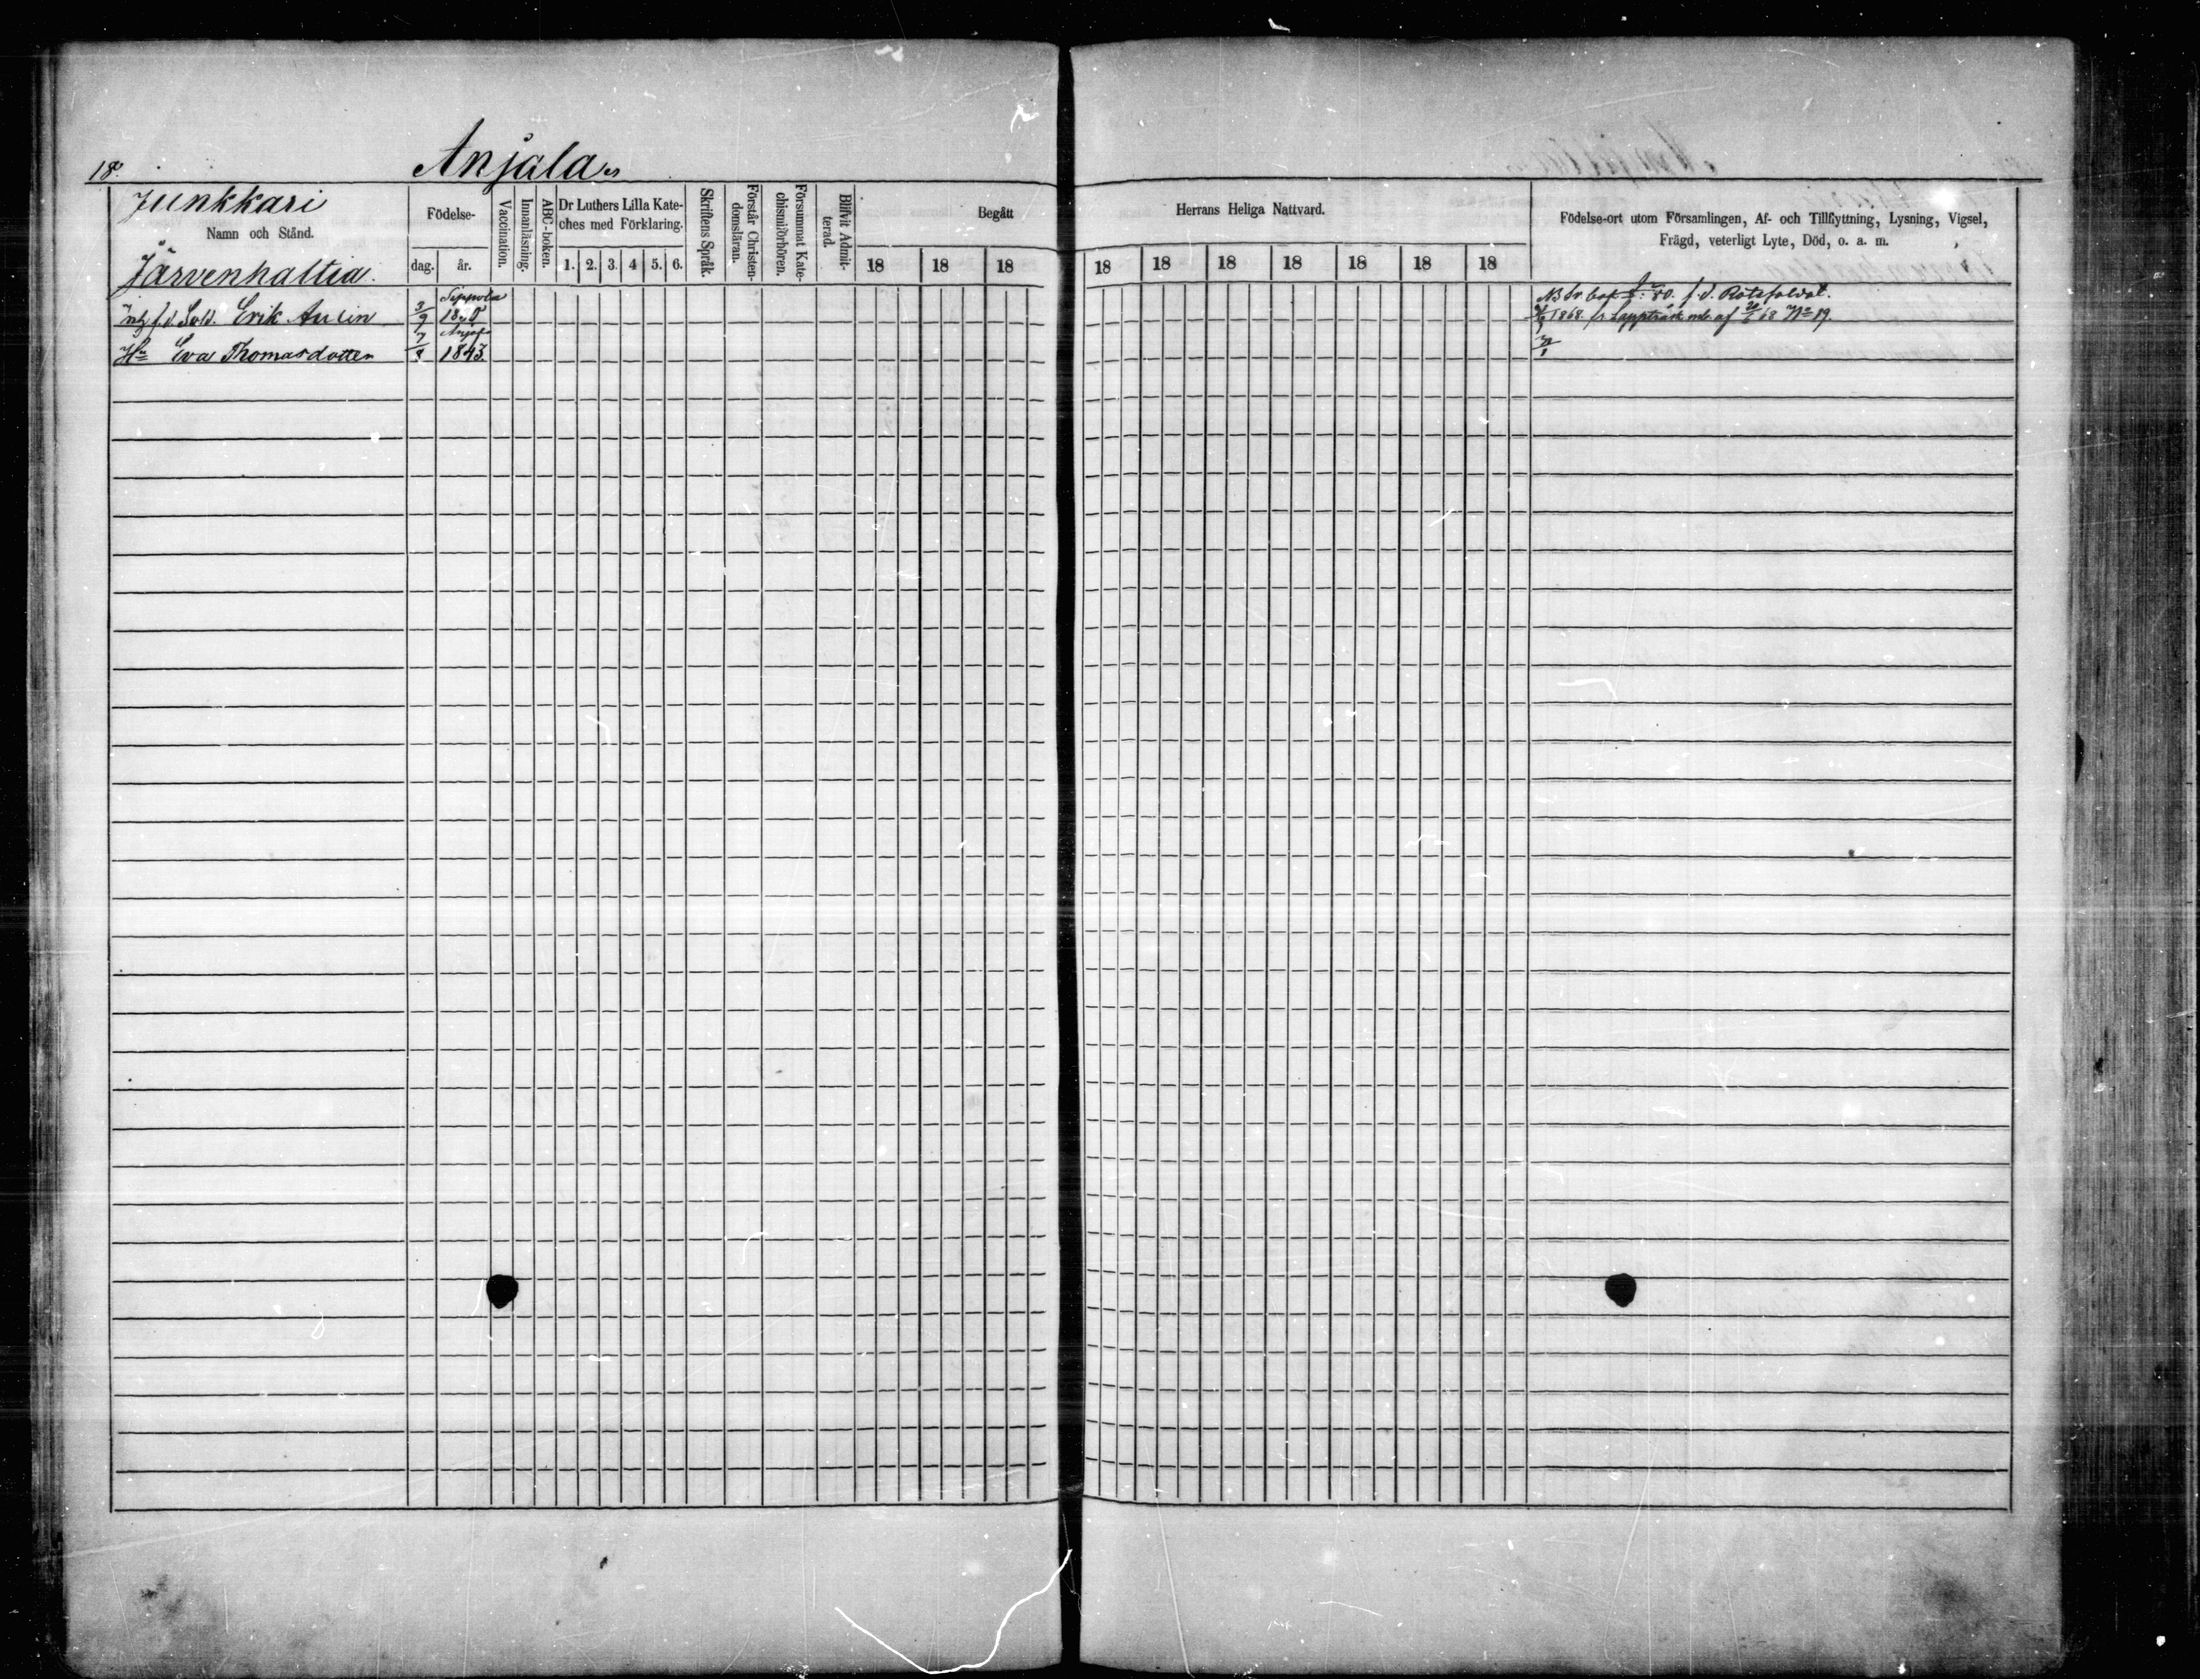 18.
Anjala
Junkkari
Namn och Stånd.
Järvenhaltia.
Födelse-
dag. år.
Vaccination.
Innanläsning.
ABC-boken.
Dr Luthers Lilla Kate-
ches med Förklaring.
1. 2. 3. 4 5. 6.
Skriftens Språk.
Förstår Christen-
domsläran.
Försummat Kate-
chismiförhören.
Blifvit Admit-
terad.
Begått
18 18 18
Herrans Heliga Nattvard.
18 18 18 18 18 18 18
Födelse-ort utom Församlingen, Af- och Tillflyttning, Lysning, Vigsel,
Frägd, veterligt Lyte, Död, o. a. m.
Sippola
Inh f.d. Sold. Erik Aulin 3/9
Anjala
Hu Eva Thomasdotter 7/8 1843.
1868 fr. Lappträsk mb. af 68 No 19.